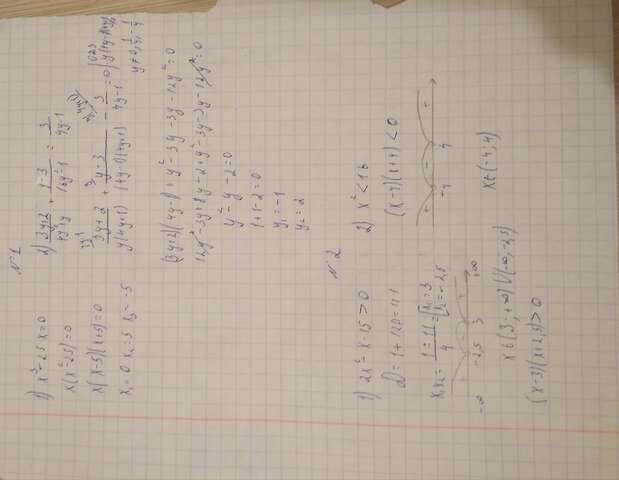 N 1
1) x³ - 25x = 0
x(x² - 25) = 0
x(x-5)(x+5) = 0
x₁ = 0 x₂ = 5 x₃ = -5
2) (3y+2)/(4y²+y) + (y-3)/(16y²-1) = 3/(4y-1)
(3y+2)/(y(4y+1)) + (y-3)/((4y-1)(4y+1)) - 3/(4y-1) = 0
y ≠ 0, 1/4, -1/4
(3y+2)(4y-1) + y² - 3y - 3y - 12y² = 0
y² - y - 2 = 0
1+1-2=0
y₁ = -1
y₂ = 2
N 2
1) 2x² - x - 15 > 0
D = 1 + 120 = 121
x₁x₂ = (1±11)/4 = [x₁ = 3 x₂ = -2,5
-∞ -2,5 3 +∞
x∈(3; +∞)∪(-∞; -2,5)
(x-3)(x+2,5) > 0
2) x² < 16
(x-4)(x+4) < 0
+ - +
-4 4
x∈(-4; 4)